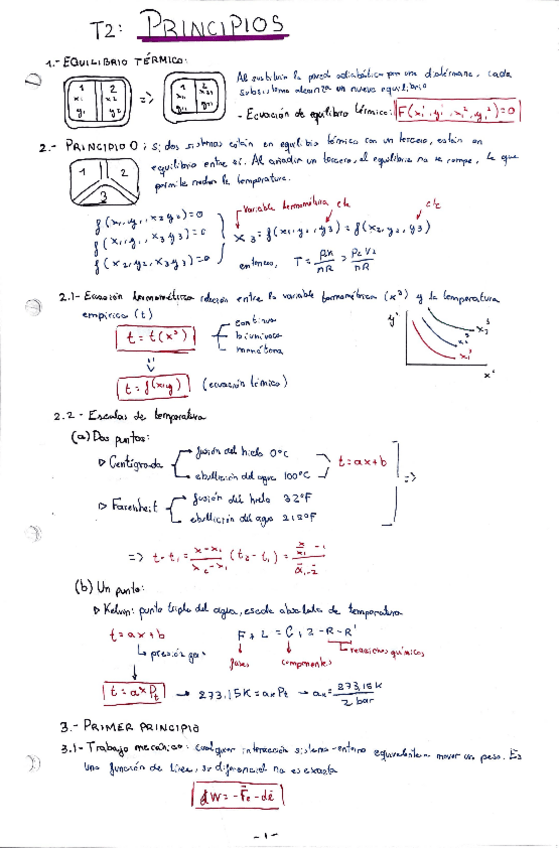 T2: PRINCIPIOS
1.- EQUILIBRIO TÉRMICO:
Al sustituir la pared adiabática por una diatérmana, cada
1 2
x₁ x₂
y₁ y₂
=>
1 2
subsistema alcanza un nuevo equilibrio
- Ecuación de equilibrio térmico: F(x¹, y¹, x², y²) = 0
2.- PRINCIPIO 0: si dos sistemas están en equilibrio térmico con un tercero, están en
equilibrio entre sí. Al añadir un tercero, el equilibrio no se rompe, lo que
permite medir la temperatura.
1 2
3
variable termométrica cte cte
f(x₁, y₁, x₂ y₂) = 0
f(x₁, y₁, x₃ y₃) = 0
f(x₂, y₂, x₃ y₃) = 0
x₃ = f(x₁, y₁, y₃) = f(x₂, y₂, y₃)
entonces, T =
2.1- Ecuación termométrica relación entre la variable termométrica (x³) y la temperatura
empírica (t)
t = t(x³)
continua
biunívoca
monótona
y'
x'
t = f(x, y) (ecuación térmica)
2.2- Escalas de temperatura
(a) Dos puntos:
▷ Centígrada
fusión del hielo 0ºC
ebullición del agua 100ºC
t = ax + b
=>
▷ Farenheit
fusión del hielo 32ºF
ebullición del agua 212ºF
=> t - t₁ = x - x₁ / x₂ - x₁ (t₂ - t₁) =
(b) Un punto:
▷ Kelvin: punto triple del agua, escala absoluta de temperatura
t = ax + b
F + L = C + 2 - R - R'
presión gas
fases
componentes
reacciones químicas
t = a* Pt → 273,15K = a* Pt → a* = 273,15K / 2 bar
3.- PRIMER PRINCIPIO
3.1- Trabajo mecánico: cualquier interacción sistema-entorno equivalente a mover un peso. Es
una función de línea, su diferencial no es exacta
đW = -F̄e · dē
- 1 -